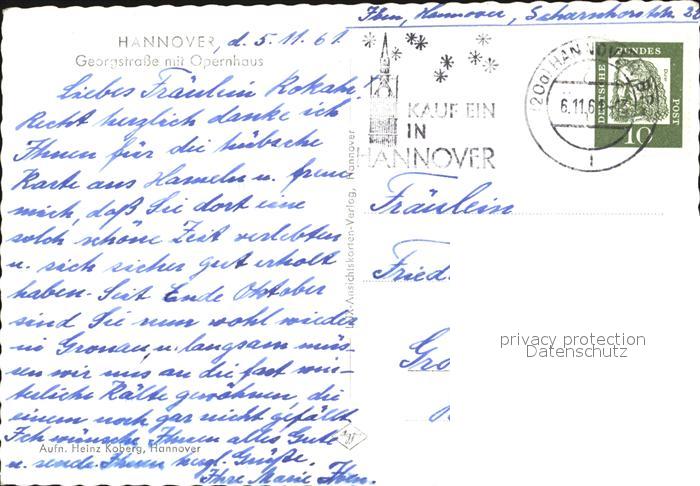 Iben, Hannover, Scharnhorststr. 20
HANNOVER, d. 5.11.61.
Georgstraße mit Opernhaus
Liebes Fräulein Kokahr,
Recht herzlich danke ich
Ihnen für die hübsche
Karte aus Hameln u. freue
mich, daß Sie dort eine
solch schöne Zeit verlebten
u. sich sicher gut erholt
haben. Seit Ende Oktober
sind Sie nun wohl wieder
in Gronau, u. langsam müs-
sen wir uns an die fast win-
terliche Kälte gewöhnen, die
einem noch gar nicht gefällt.
Ich wünsche Ihnen alles Gute
Aufn. Heinz Koberg, Hannover
u. sende Ihnen herzl. Grüße.
Ihre Marie Iben.
-Ansichtskarten-Verlag, Hannover
KAUF EIN
IN
HANNOVER
(20a) HANNOVER
6.11.61
DEUTSCHE BUNDESPOST
10
Fräulein
Fried
Gro
privacy protection
Datenschutz